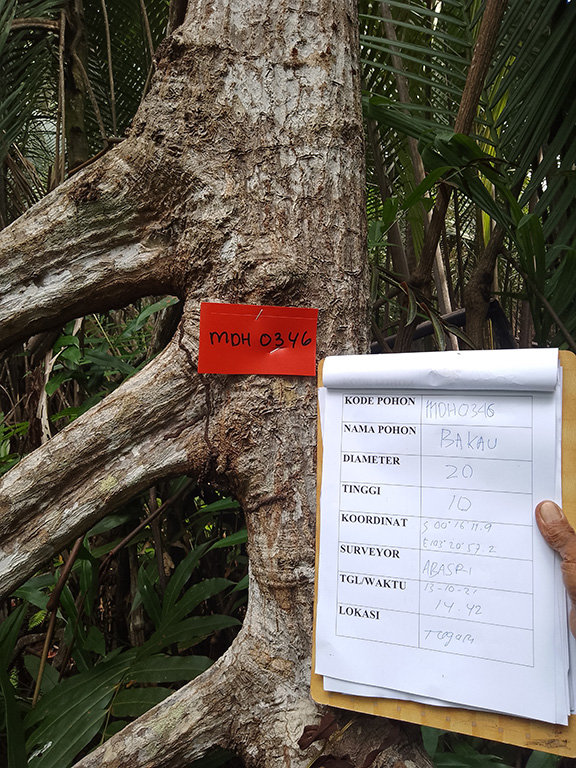 MDH 0346
KODE POHON MDH0346
NAMA POHON BAKAU
DIAMETER 20
TINGGI 10
KOORDINAT S 00°16'11.9
E103°20'57.2
SURVEYOR ABASRI
TGL/WAKTU 13-10-21
14.42
LOKASI